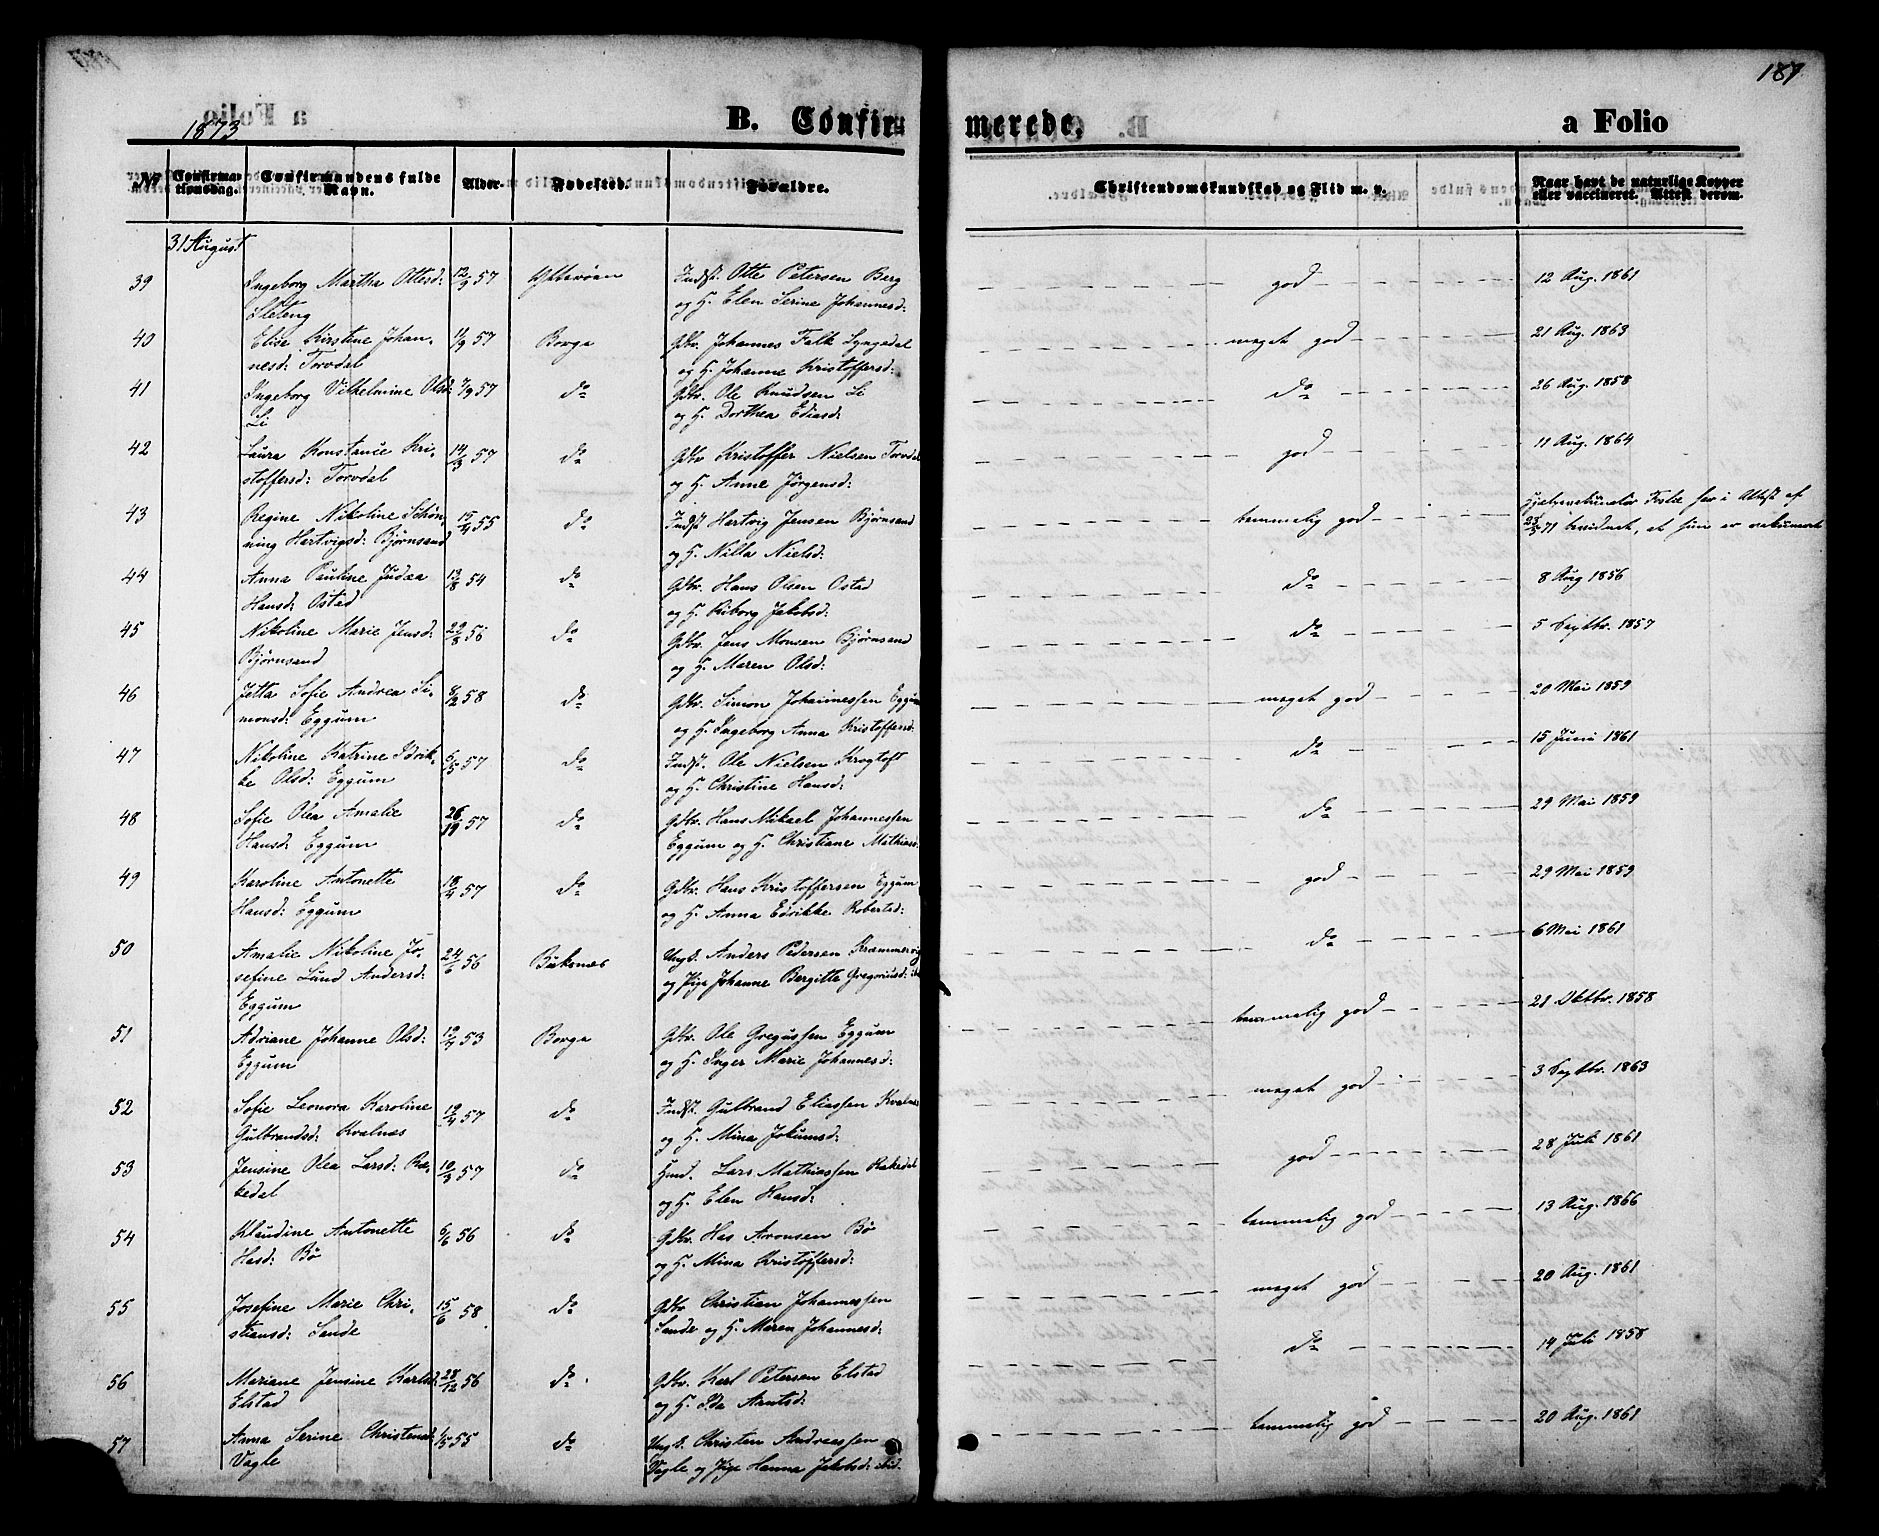 187
1873
B. Confir
merede.
a Folio
No
Confirma-
tionsdag.
Confirmandens fulde
Navn.
Alder.
Fødested.
Forældre.
Christendomskundskab og Flid m. v.
Naar havt de naturlige Kopper
eller vaccineret. Attest derom.
31 August
39 Ingeborg Martha Ottesd: 12/9 57 Indst. Otte Petersen Berg god 12 Aug. 1861
og H. Elen Serine Johannesd:
40 Elise Kirstine Johan- 11/9 57 Borge Gbr. Johannes Falk Lyngedal meget god 21 Aug. 1863
nesd: Torvdal og H. Johanne Kristoffersd:
41 Ingeborg Vilhelmine Olsd: 7/9 57 do Gbr. Ole Knudsen Li do 26 Aug. 1858
Li og H. Dorthea Ediasd:
42 Laura Konstance Kri- 14/3 57 do Gbr Kristoffer Nielsen Torvdal god 11 Aug. 1864
stoffersd: Torvdal og H. Anne Jörgensd:
43 Regine Nikoline Schøn- 15/4 55 do Indst Hartvig Jensen Bjørnsand temmelig god Hjelpevaccinatør Falk har i Attest af
ning Hartvigsd: Bjørnsand og H. Nilla Nielsd: 23/5 71 bevidnet, at hun er
44 Anna Pauline Judea 13/8 54 do Gbr. Hans Olsen Ostad do 8 Aug 1856
Hansd: Ostad og H. Kiborg Jakobsd:
45 Nikoline Marie Jensd: 29/8 56 do Gbr. Jens Monsen Bjørnsand do 5 Septbr. 1857
Bjørnsand og H. Maren Olsd:
46 Jetta Sofie Andrea Si- 8/2 58 do Gbr. Simon Johannessen Eggum meget god 20 Mai 1859
monsd: Eggum og H. Ingeborg Anna Kristoffersd:
47 Nikoline Katrine Idrik- 6/5 57 do Indst. Ole Nielsen Krogtoft do 15 Juni 1861
ke Olsd: Eggum og H. Christine Hansd:
48 Sofie Olea Amalie 57 do Gbr. Hans Mikael Johannessen do 29 Mai 1859
Hansd: Eggum Eggum og H. Christiane Mathiasd:
49 Karoline Antonette 18/4 57 do Gbr. Hans Kristoffersen Eggum god 29 Mai 1859
Hansd: Eggum og H. Anna Edrikke Robertsd:
50 Amalie Nikoline Jo- 24/6 56 Buksnes Ungk. Anders Pedersen Kræmmervig do 6 Mai 1861
sefine Lund Andersd: og Pige Johanne Bergitte Gregoriusd:
Eggum
51 Adriane Johanne Olsd: 12/4 53 Borge Gbr. Ole Gregussen Eggum temmelig god 21 Oktbr. 1858
Eggum og H. Inger Marie Johannesd:
52 Sofie Leonora Karoline 19/4 57 do Indst. Gulbrand Eliassen Kvalnes meget god 3 Septbr. 1863
Gulbrandsd: Kvalnes og H. Mina Jokumsd:
53 Jensine Olea Larsd: Ra- 10/3 57 do Lars Mathiassen Rakedal god 28 Juli 1861
kedal og H. Elen Hansd:
54 Klaudine Antonette 6/6 56 do Gbr. Has Aronsen Bø temmelig god 13 Aug. 1866
Hasd: Bø og H. Mina Kristoffersd:
55 Josefine Marie Chri- 15/6 58 do Gbr Christian Johannessen meget god 20 Aug. 1861
stiansd: Sande Sande og H. Maren Johannesd:
56 Mariane Jensine Karlsd: 28/12 56 do Gbr. Karl Petersen Elstad do 14 Juli 1858
Elstad og H. Ida Arntsd:
57 Anna Serine Christensd: 1/5 55 do Ungk. Christen Andreassen temmelig god 20 Aug. 1861
Vagle Vagle og Pige Hanna Jakobsd: ibid.